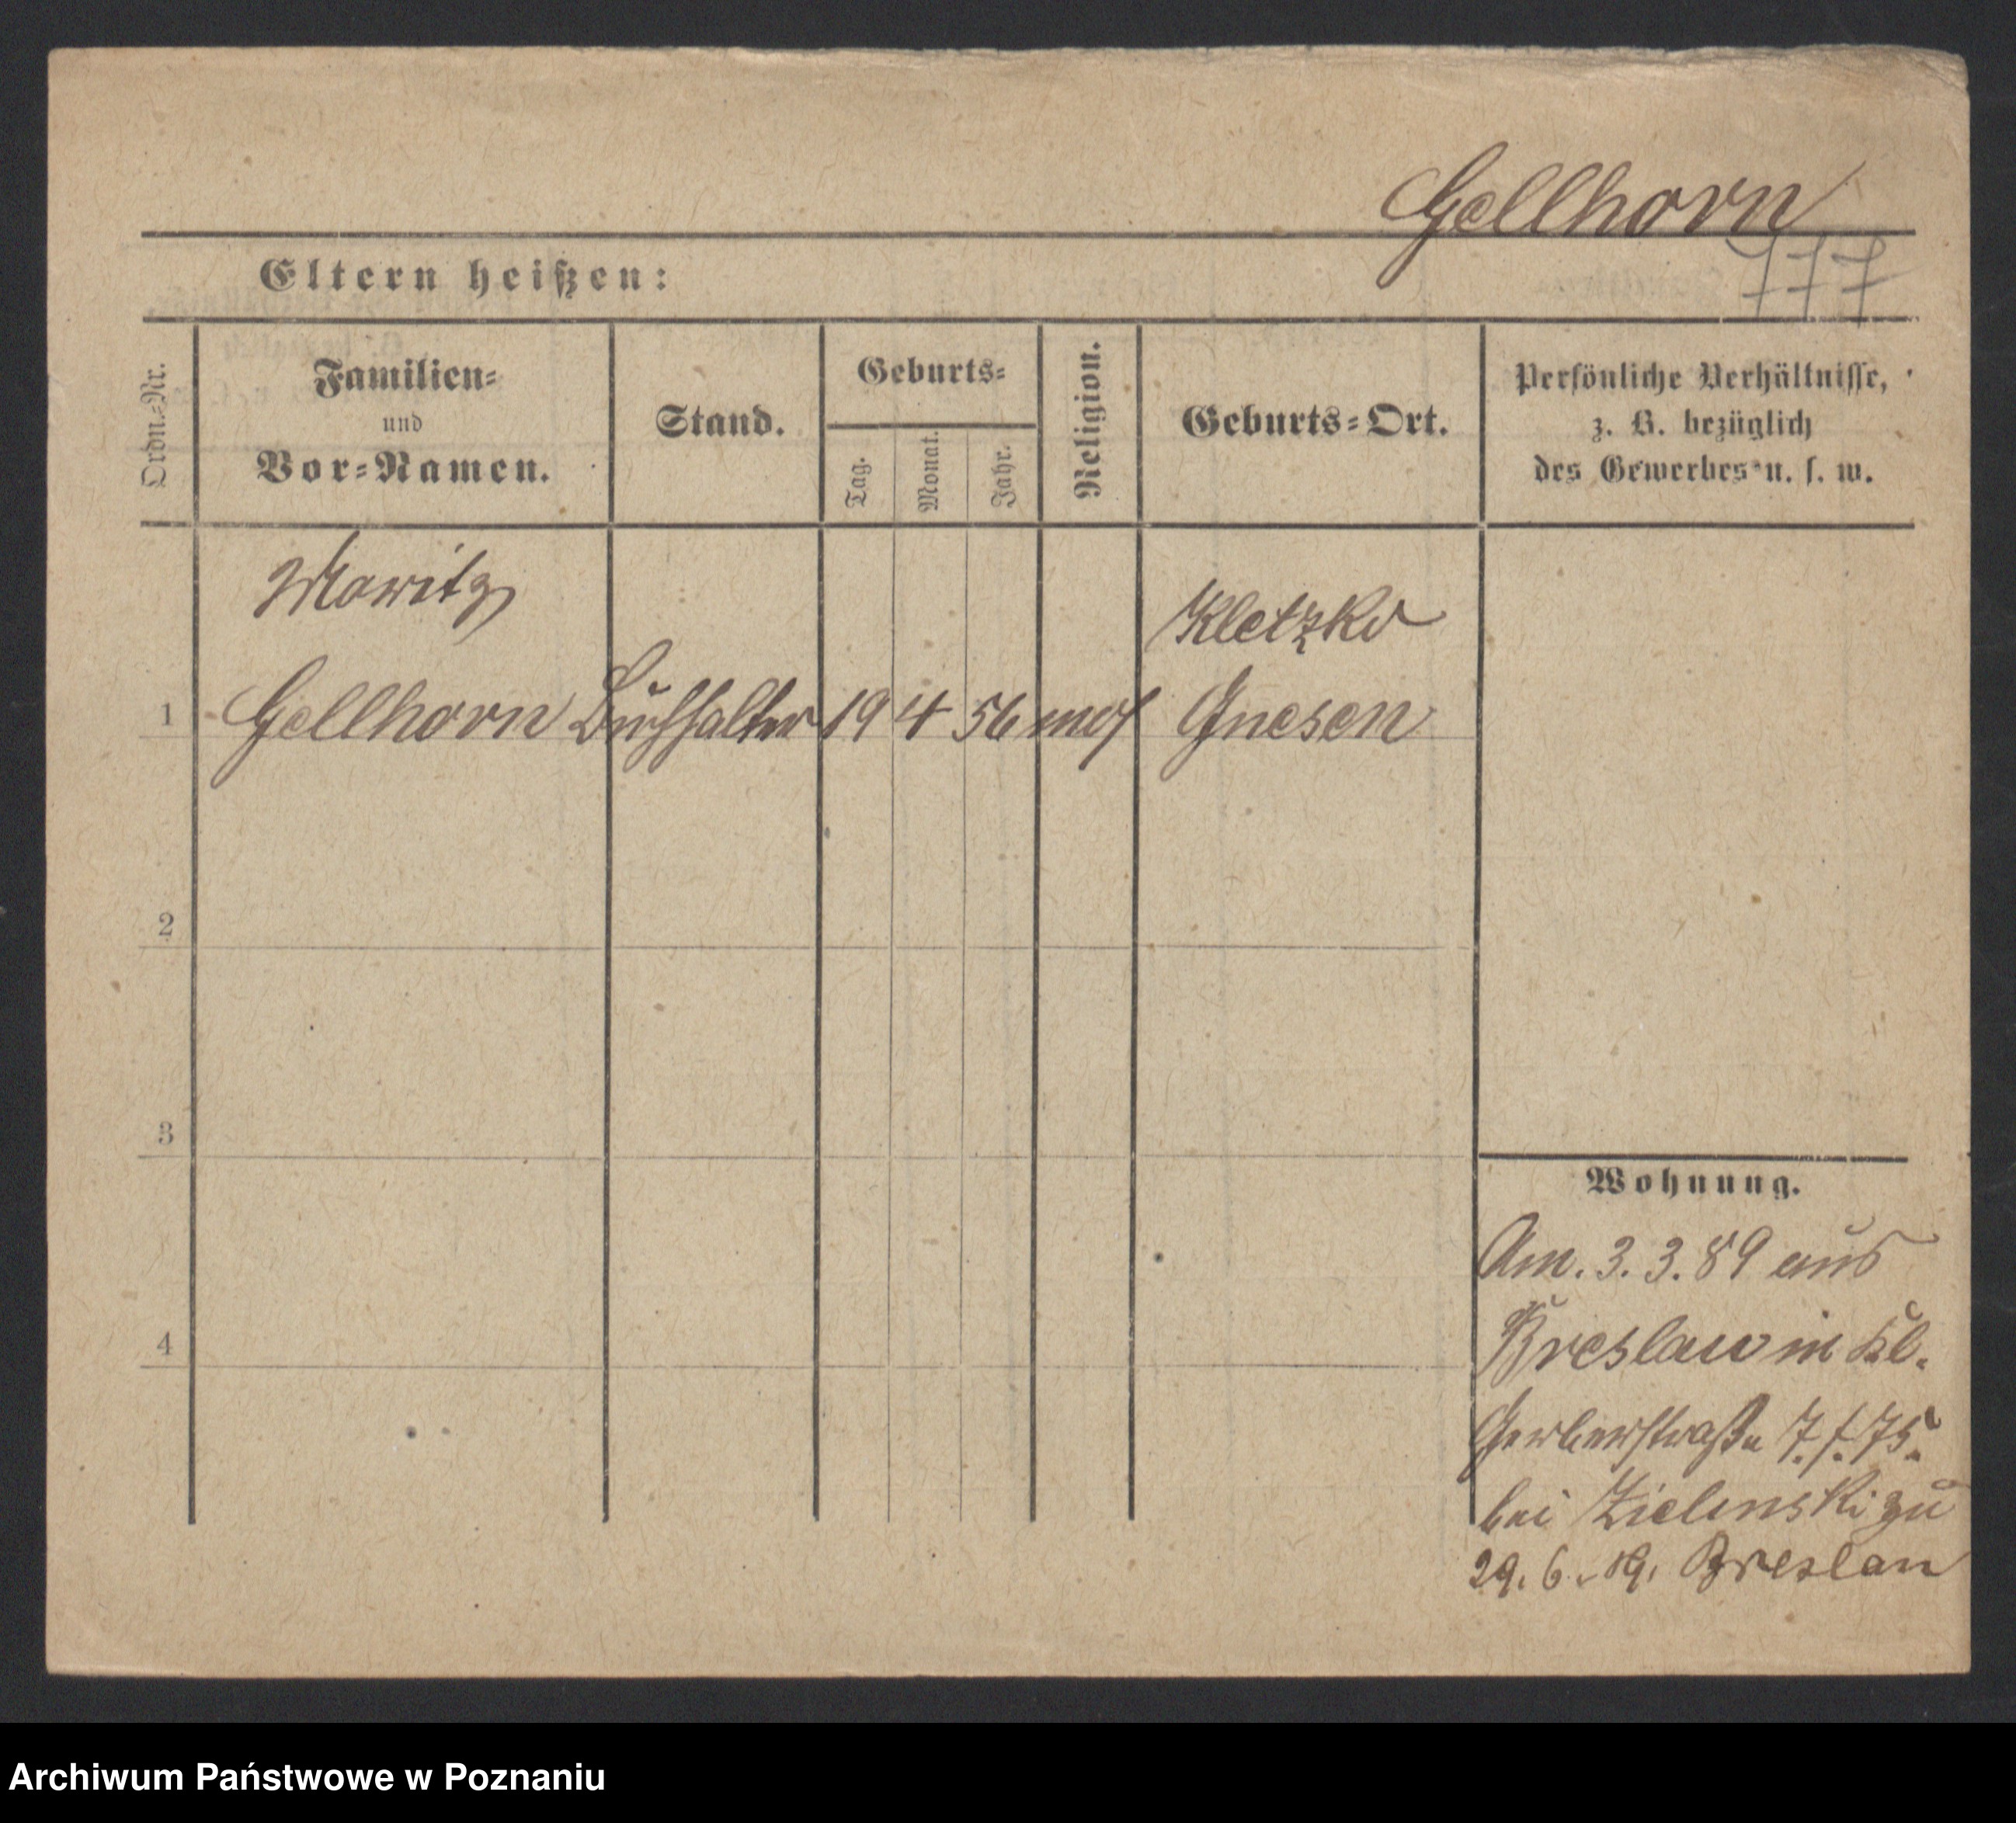 Gellhorn
777
Eltern heißen:
Ordn.-Nr.
Familien-
und
Vor-Namen.
Stand.
Geburts-
Tag.
Monat.
Jahr.
Religion.
Geburts-Ort.
Persönliche Verhältnisse,
z. B. bezüglich
des Gewerbes u. s. w.
Moritz
Kletzko
1 Gellhorn Buchhalter 19 4 56 mos Gnesen
2
3
4
Wohnung.
Am. 3. 3. 89 aus
Breslau in Kl.
Gerberstraße 7. f. 75.
bei Zielinski zu
29. 6. 89. Breslau
Archiwum Państwowe w Poznaniu